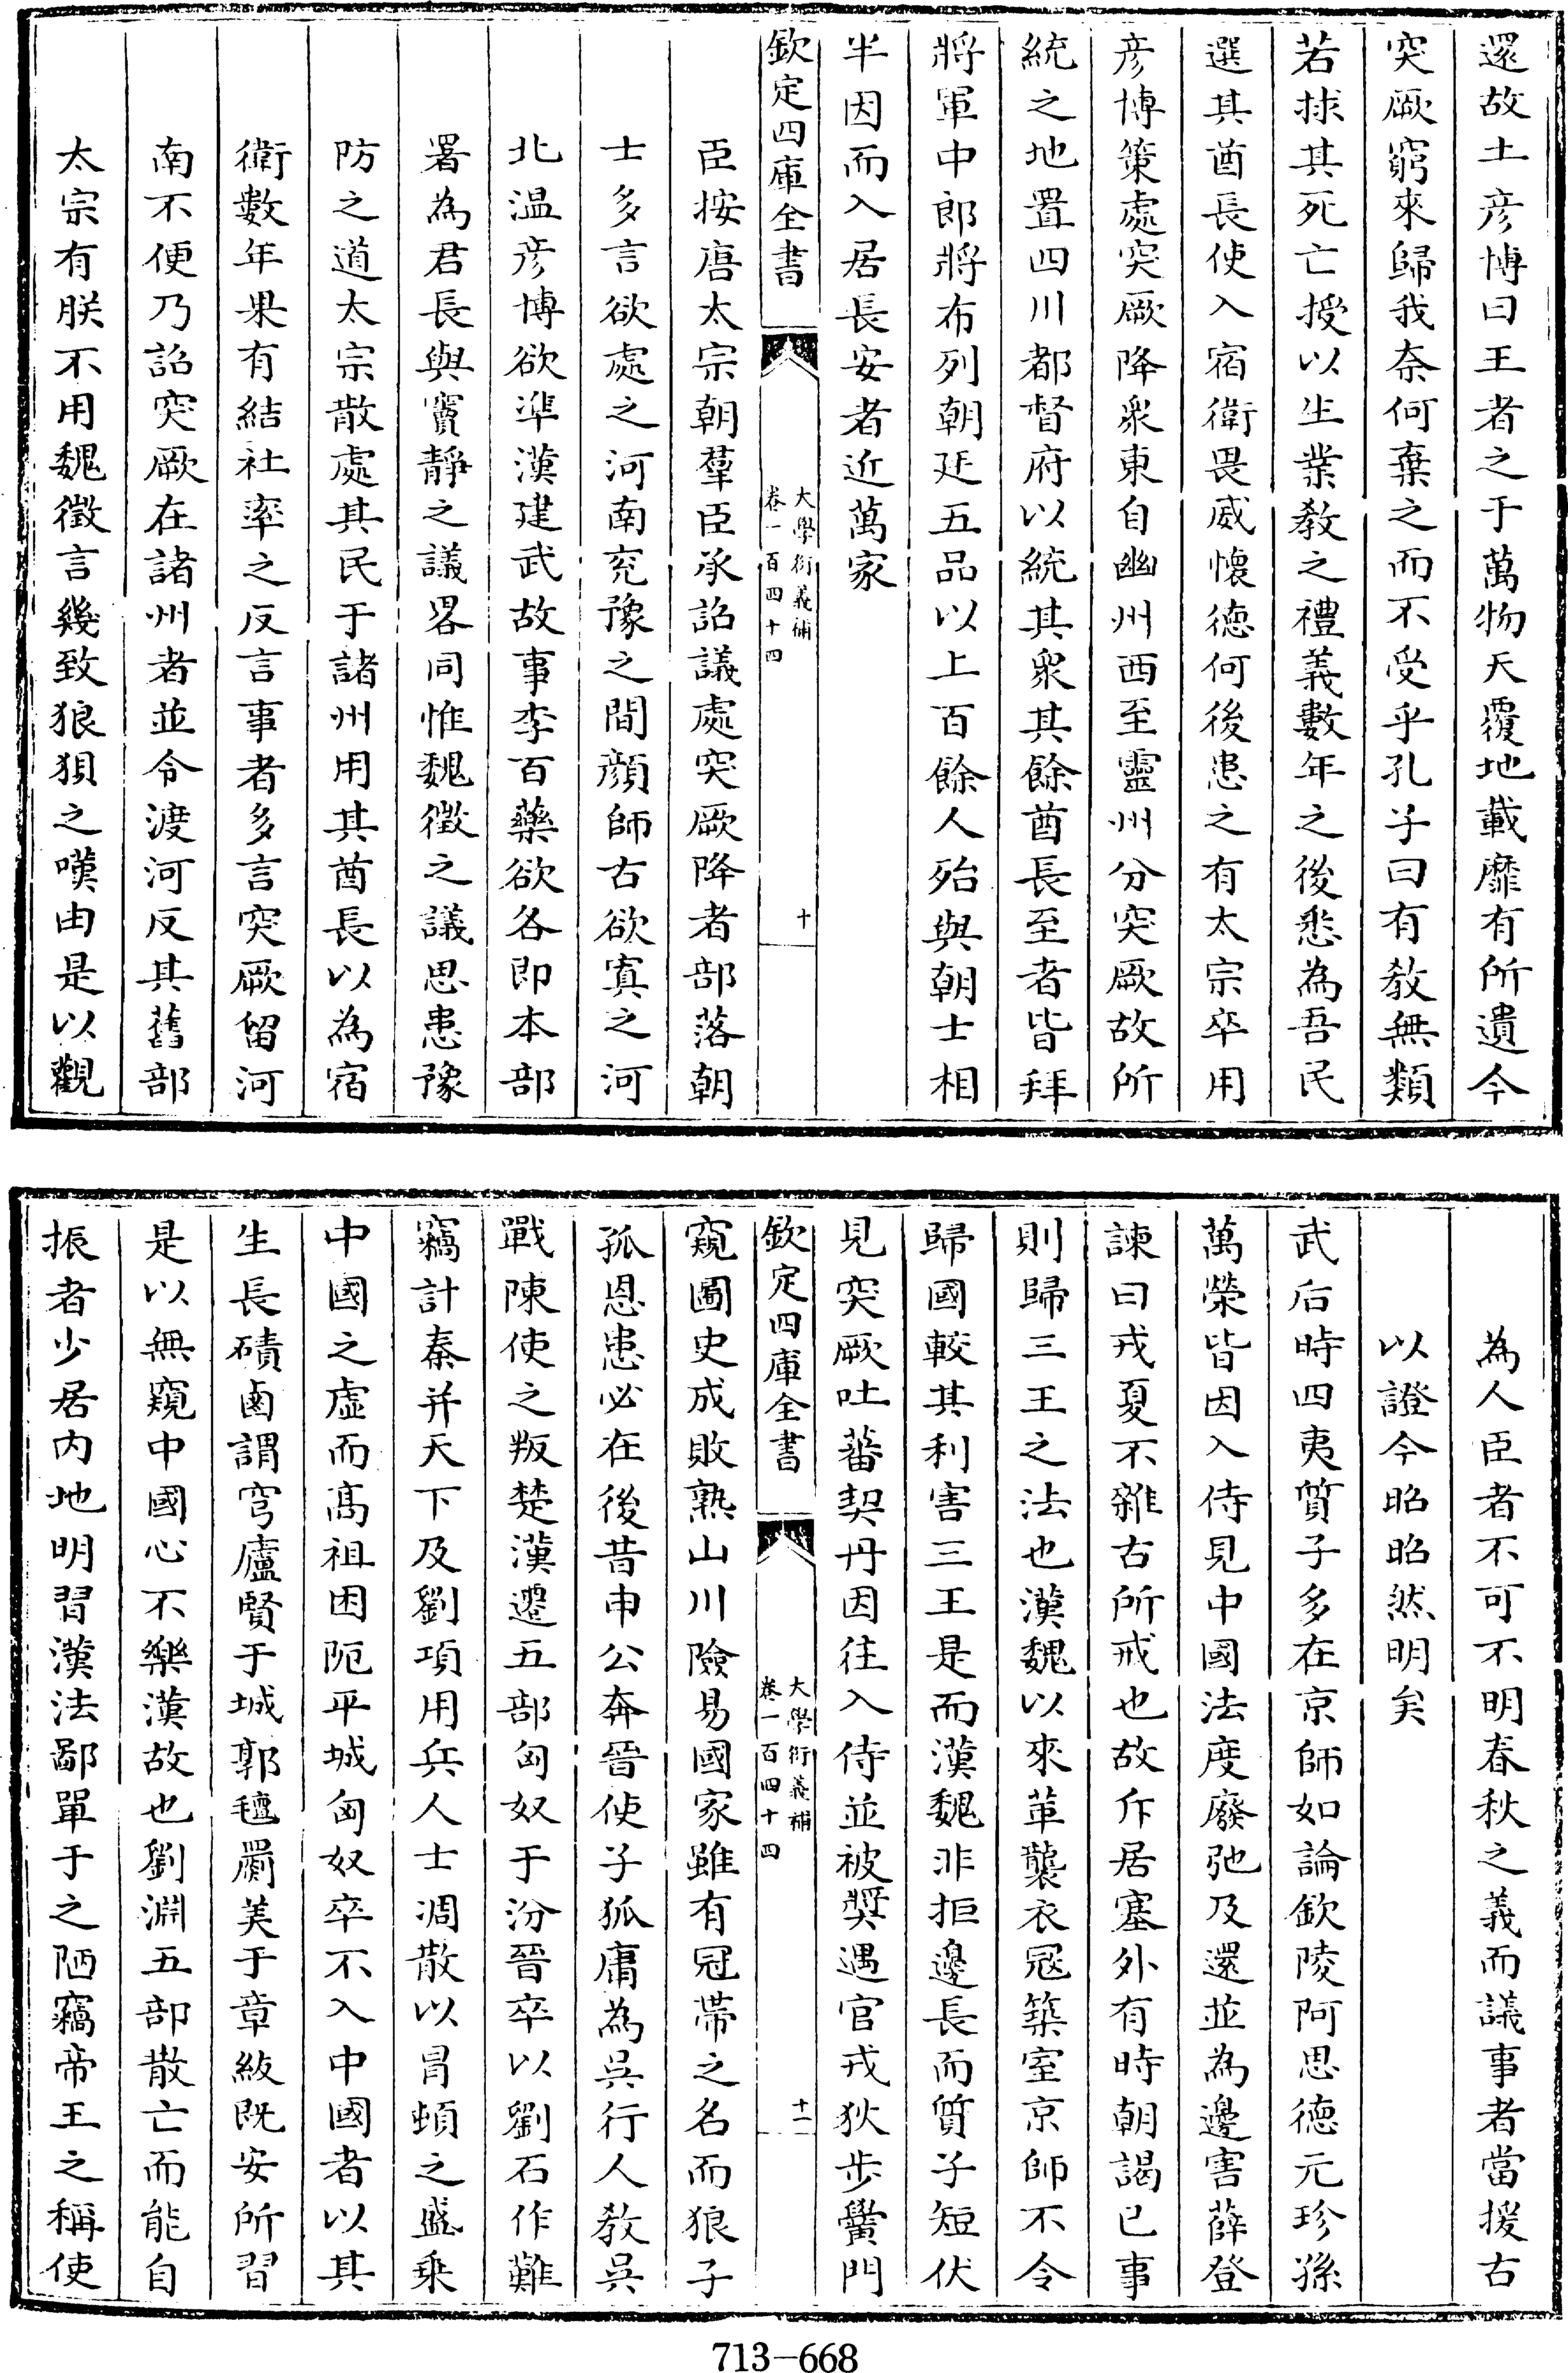 還故土彦博曰王者之于萬物天覆地載靡有所遺今
突厥窮來歸我奈何棄之而不受乎孔子曰有教無類
若捄其死亡授以生業教之禮義數年之後悉為吾民
選其酋長使入宿衛畏威懷德何後患之有太宗卒用
彦博策處突厥降衆東自幽州西至靈州分突厥故所
統之地置四川都督府以統其衆其餘酋長至者皆拜
將軍中郎將布列朝廷五品以上百餘人殆與朝士相
半因而入居長安者近萬家
欽定四庫全書
大學衍義補
卷一百四十四
十
臣按唐太宗朝羣臣承詔議處突厥降者部落朝
士多言欲處之河南兖豫之間顔師古欲寘之河
北温彦博欲凖漢建武故事李百藥欲各即本部
署為君長與竇靜之議畧同惟魏徵之議思患豫
防之道太宗散處其民于諸州用其酋長以為宿
衛數年果有結社率之反言事者多言突厥留河
南不便乃詔突厥在諸州者並令渡河反其舊部
太宗有朕不用魏徵言幾致狼狽之嘆由是以觀
為人臣者不可不明春秋之義而議事者當援古
以證今昭昭然明矣
武后時四夷質子多在京師如論欽陵阿思德元珍孫
萬榮皆因入侍見中國法度廢弛及還並為邊害薛登
諫曰戎夏不雜古所戒也故斥居塞外有時朝謁已事
則歸三王之法也漢魏以來革襲衣冠築室京師不令
歸國較其利害三王是而漢魏非拒邊長而質子短伏
見突厥吐蕃契丹因往入侍並被奬遇官戎狄步黌門
欽定四庫全書
大學衍義補
卷一百四十四
十一
窺圖史成敗熟山川險易國家雖有冠帶之名而狼子
孤恩患必在後昔申公奔晉使子狐庸為吳行人教吳
戰陳使之叛楚漢遷五部匈奴于汾晉卒以劉石作難
竊計秦并天下及劉項用兵人士凋散以冐頓之盛乗
中國之虚而髙祖困阨平城匈奴卒不入中國者以其
生長磧鹵謂穹廬賢于城郭氊罽美于章紱既安所習
是以無窺中國心不樂漢故也劉淵五部散亡而能自
振者少居内地明習漢法鄙單于之陋竊帝王之稱使
713-668